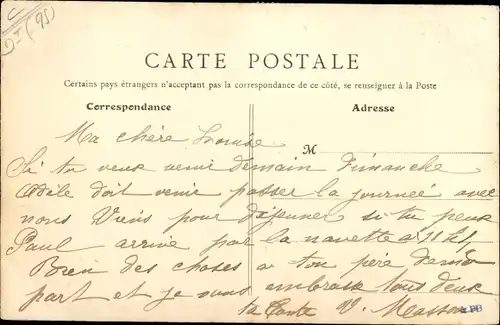 D I (95)
CARTE POSTALE
Certains pays étrangers n'acceptant pas la correspondance de ce côté, se renseigner à la Poste
Correspondance
Adresse
Ma chère Louise
M
Si tu veux venir demain Dimanche
Odile doit venir passer la journeé avec
nous Viens pour déjeuner si tu peux
Paul arrive par la navette a 11 h
Bien des choses a ton père de ma
part et je vous embrasse tous deux
ta tante V. Masson